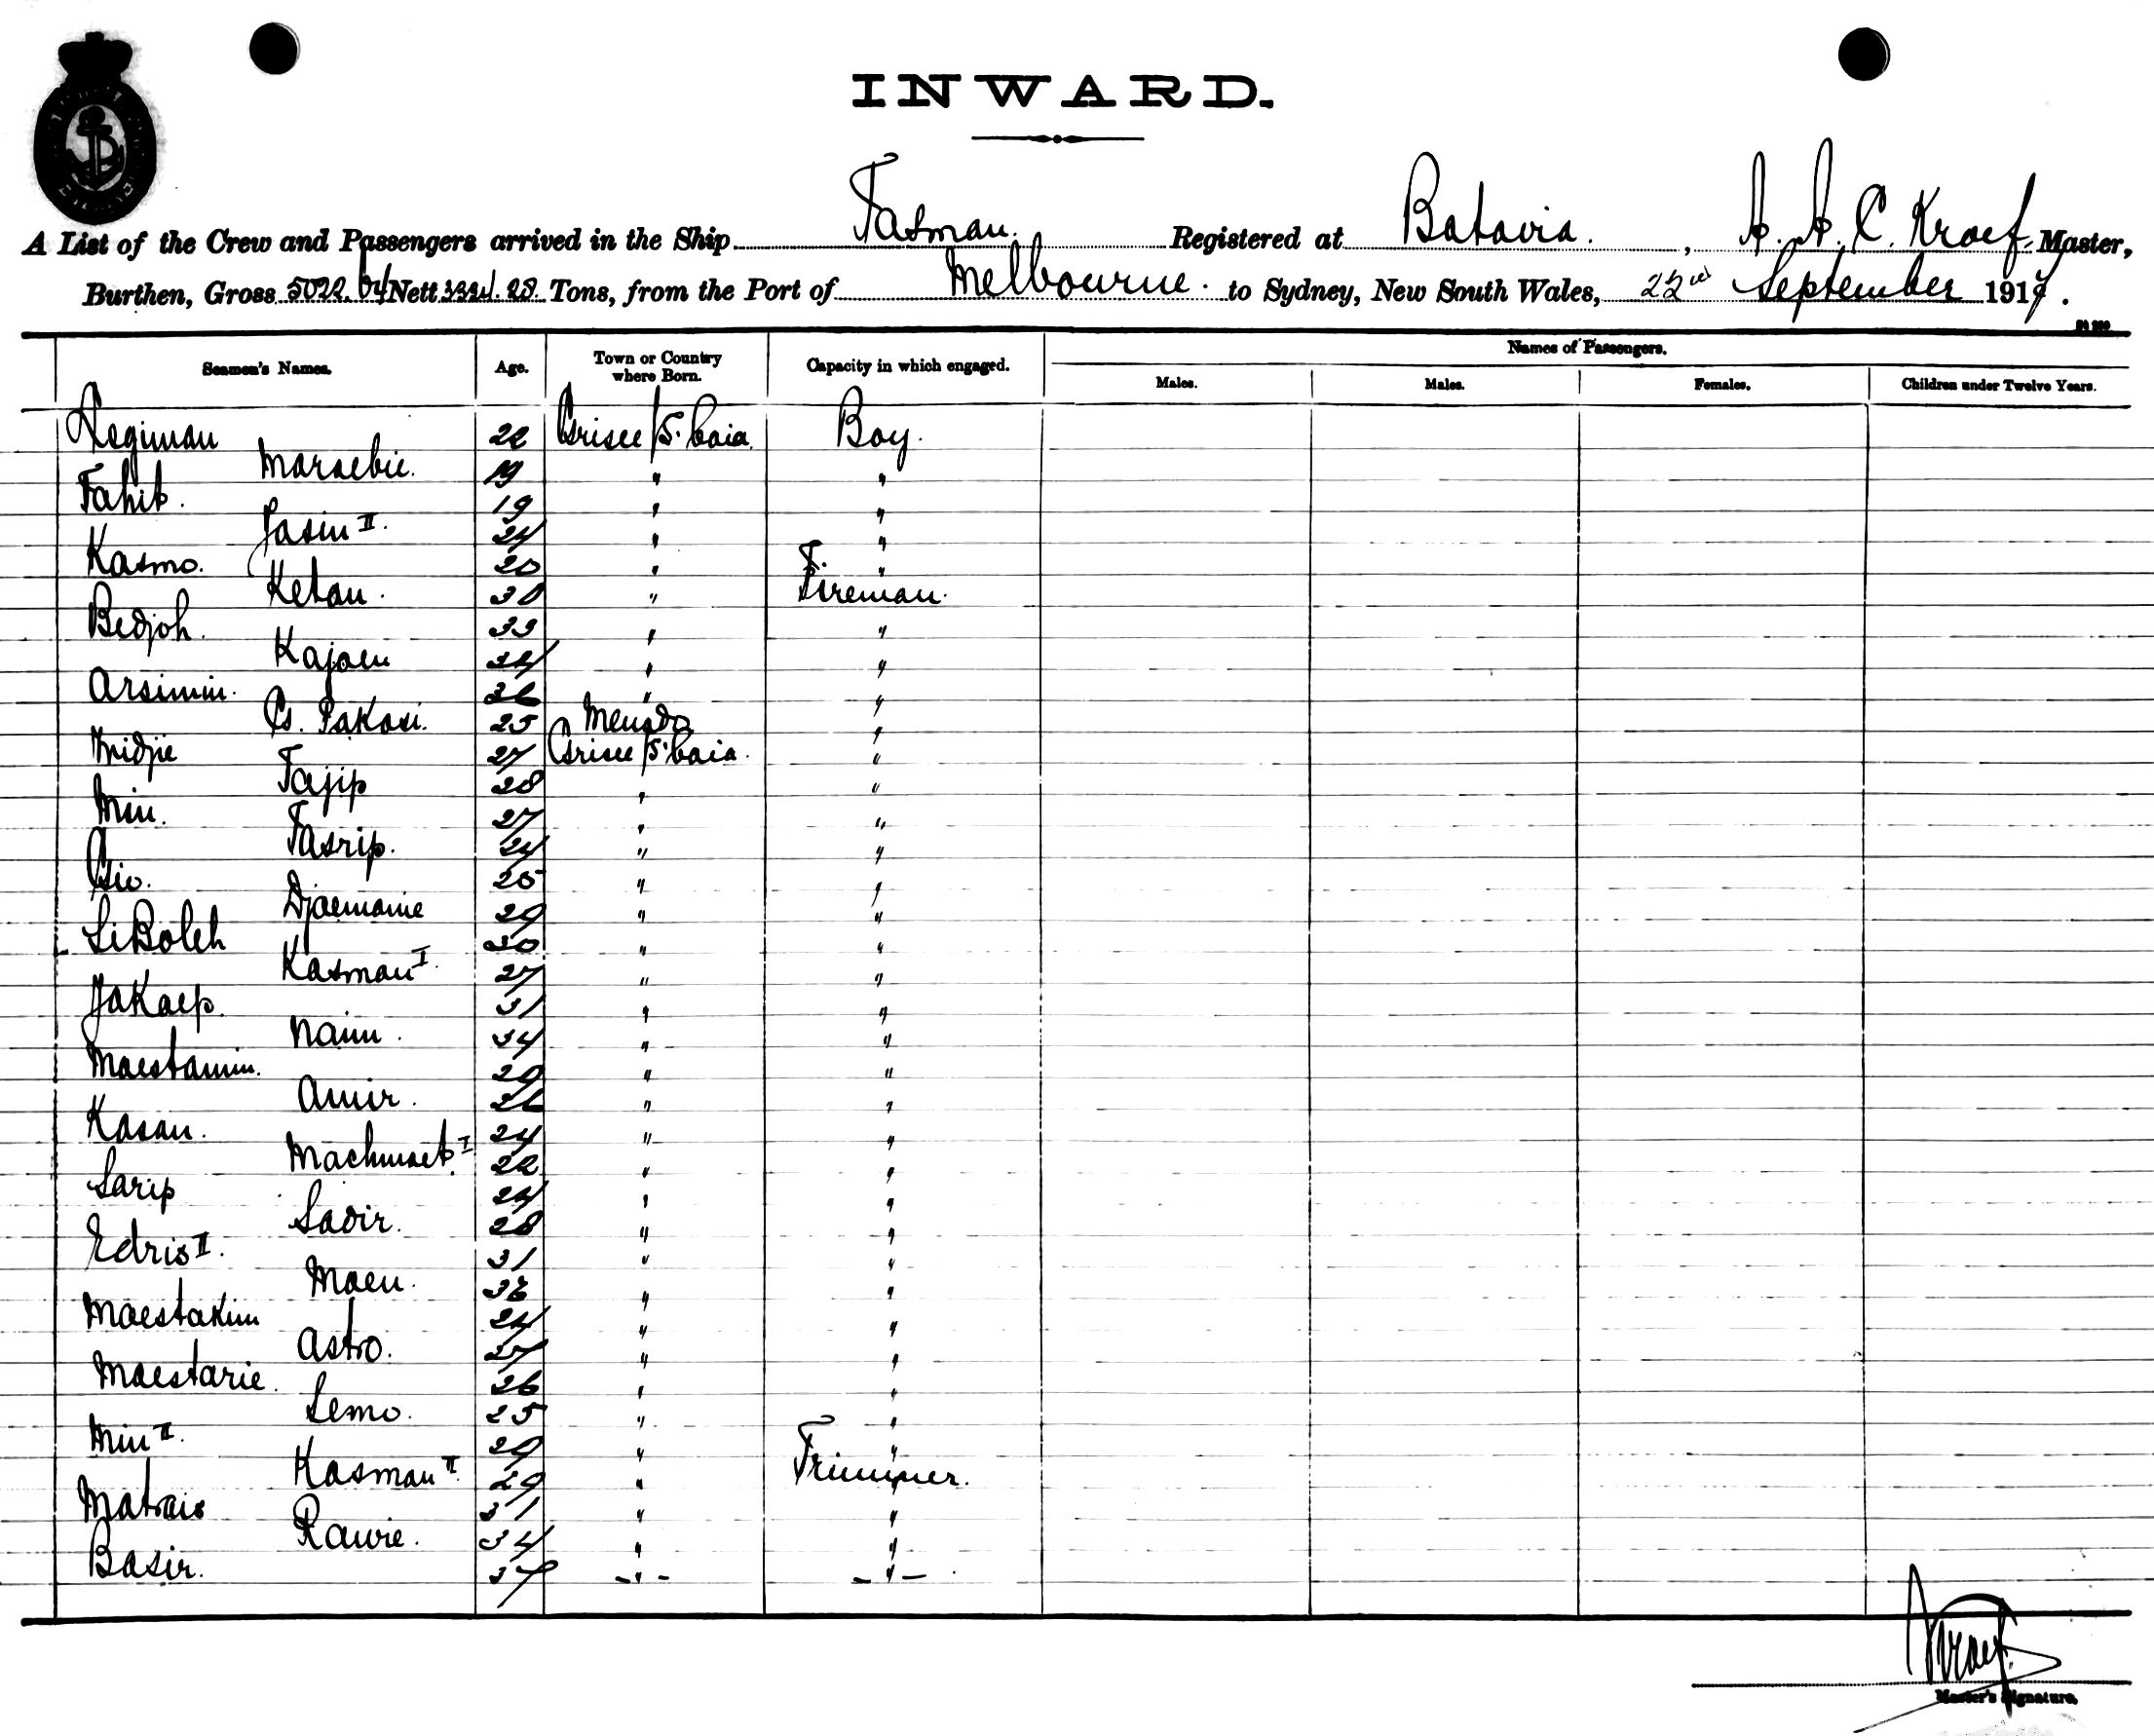 INWARD.
A List of the Crew and Passengers arrived in the Ship Tasman. Registered at Batavia. , A. A. C. Kroef. Master,
Burthen, Gross 5022.64 Nett 3334.29 Tons, from the Port of Melbourne. to Sydney, New South Wales, 22nd September 1917.
Seamen's Names. Age. Town or Country where Born. Capacity in which engaged. Names of Passengers.
Males. Males. Females. Children under Twelve Years.
22 Grisee/S'baia. Boy.
Maraebie. 19 " "
Tahib. 19 " "
Jasin II. 24 " "
Kasmo. 20 " "
Ketan. 30 " Fireman.
Bedjoh. 33 " "
Kajaen 34 " "
Arsimin. 36 " "
Gs. Pakasi. 25 Menado "
Midjie 27 Grisee/S'baia. "
Tajip 28 " "
Min. 27 " "
Tasrip. 24 " "
Gio. 25 " "
Djaemanie 29 " "
Siboleh 30 " "
Kasman I. 27 " "
Jakaep. 31 " "
Naim. 34 " "
Maestamin. 29 " "
Amir. 26 " "
Kasan. 24 " "
Machmoet I. 22 " "
Sarip 24 " "
Sadir. 28 " "
Edris II. 31 " "
Moen. 36 " "
Maestakim 24 " "
Astro. 27 " "
Maestarie. 26 " "
Semo. 25 " "
Min II. 29 " "
Kasman II. 29 " Trimmer.
Matrais 31 " "
Rawie. 34 " "
Basir. 37 - " - - " -
Kroef.
Master's Signature.